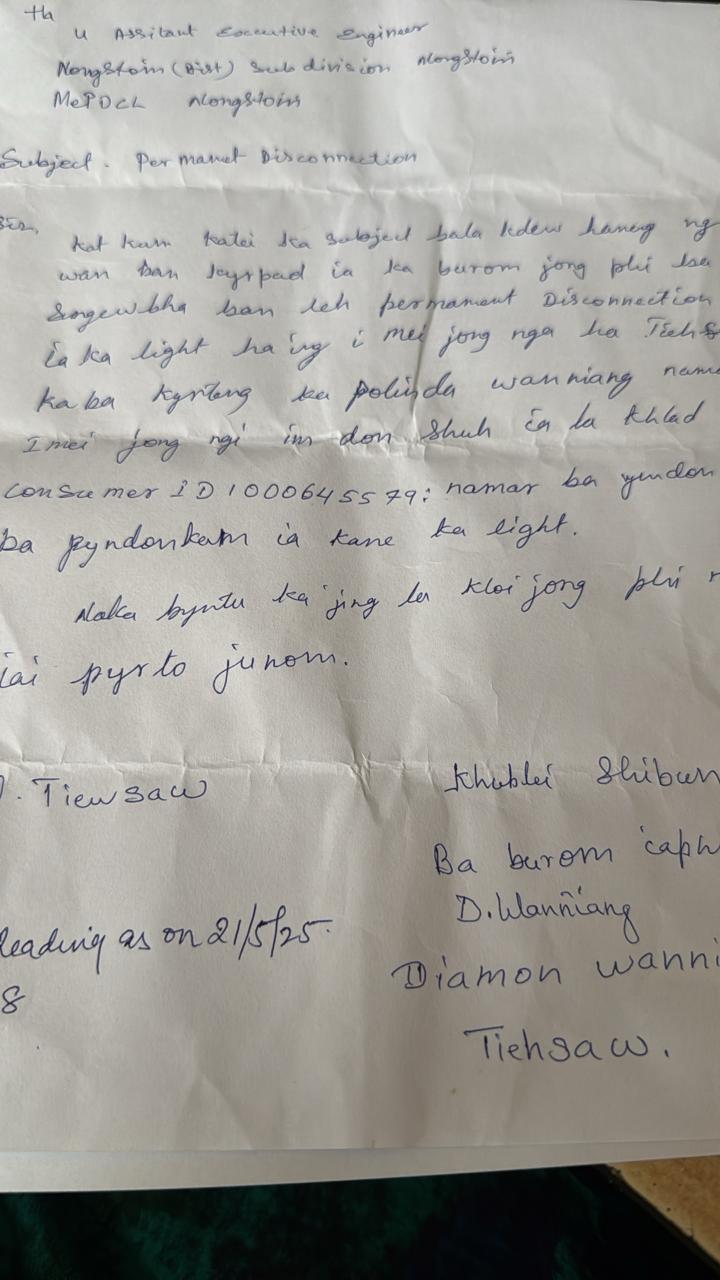 th
u Assitant Executive Engineer
Nongstoin (Dist) Sub division Nongstoin
MePDCL Nongstoin
Subject. Permanet Disconnection
Sir,
Kat kum katei ka subject bala kdew haneng ng
wan ban kyrpad ia ka burom jong phi ba
sngewbha ban leh permanent Disconnection
ia ka light ha ing i mei jong nga ha Tiehs
kaba kyrteng ka polinda wanniang nam
I mei jong ngi im don shuh ia la khlad
Consumer ID 1000645579: namar ba ymdon
ba pyndonkam ia kane ka light.
Naka bynta ka jing la kloi jong phi
iai pyrto junom.
. Tiewsaw
Khublei Shibun
Ba burom iaph
D.Wanniang
Reading as on 21/5/25.
Diamon wanni
8
Tiehsaw.